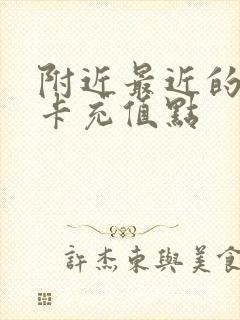 附近最近的
卡充值點
許杰東與美食